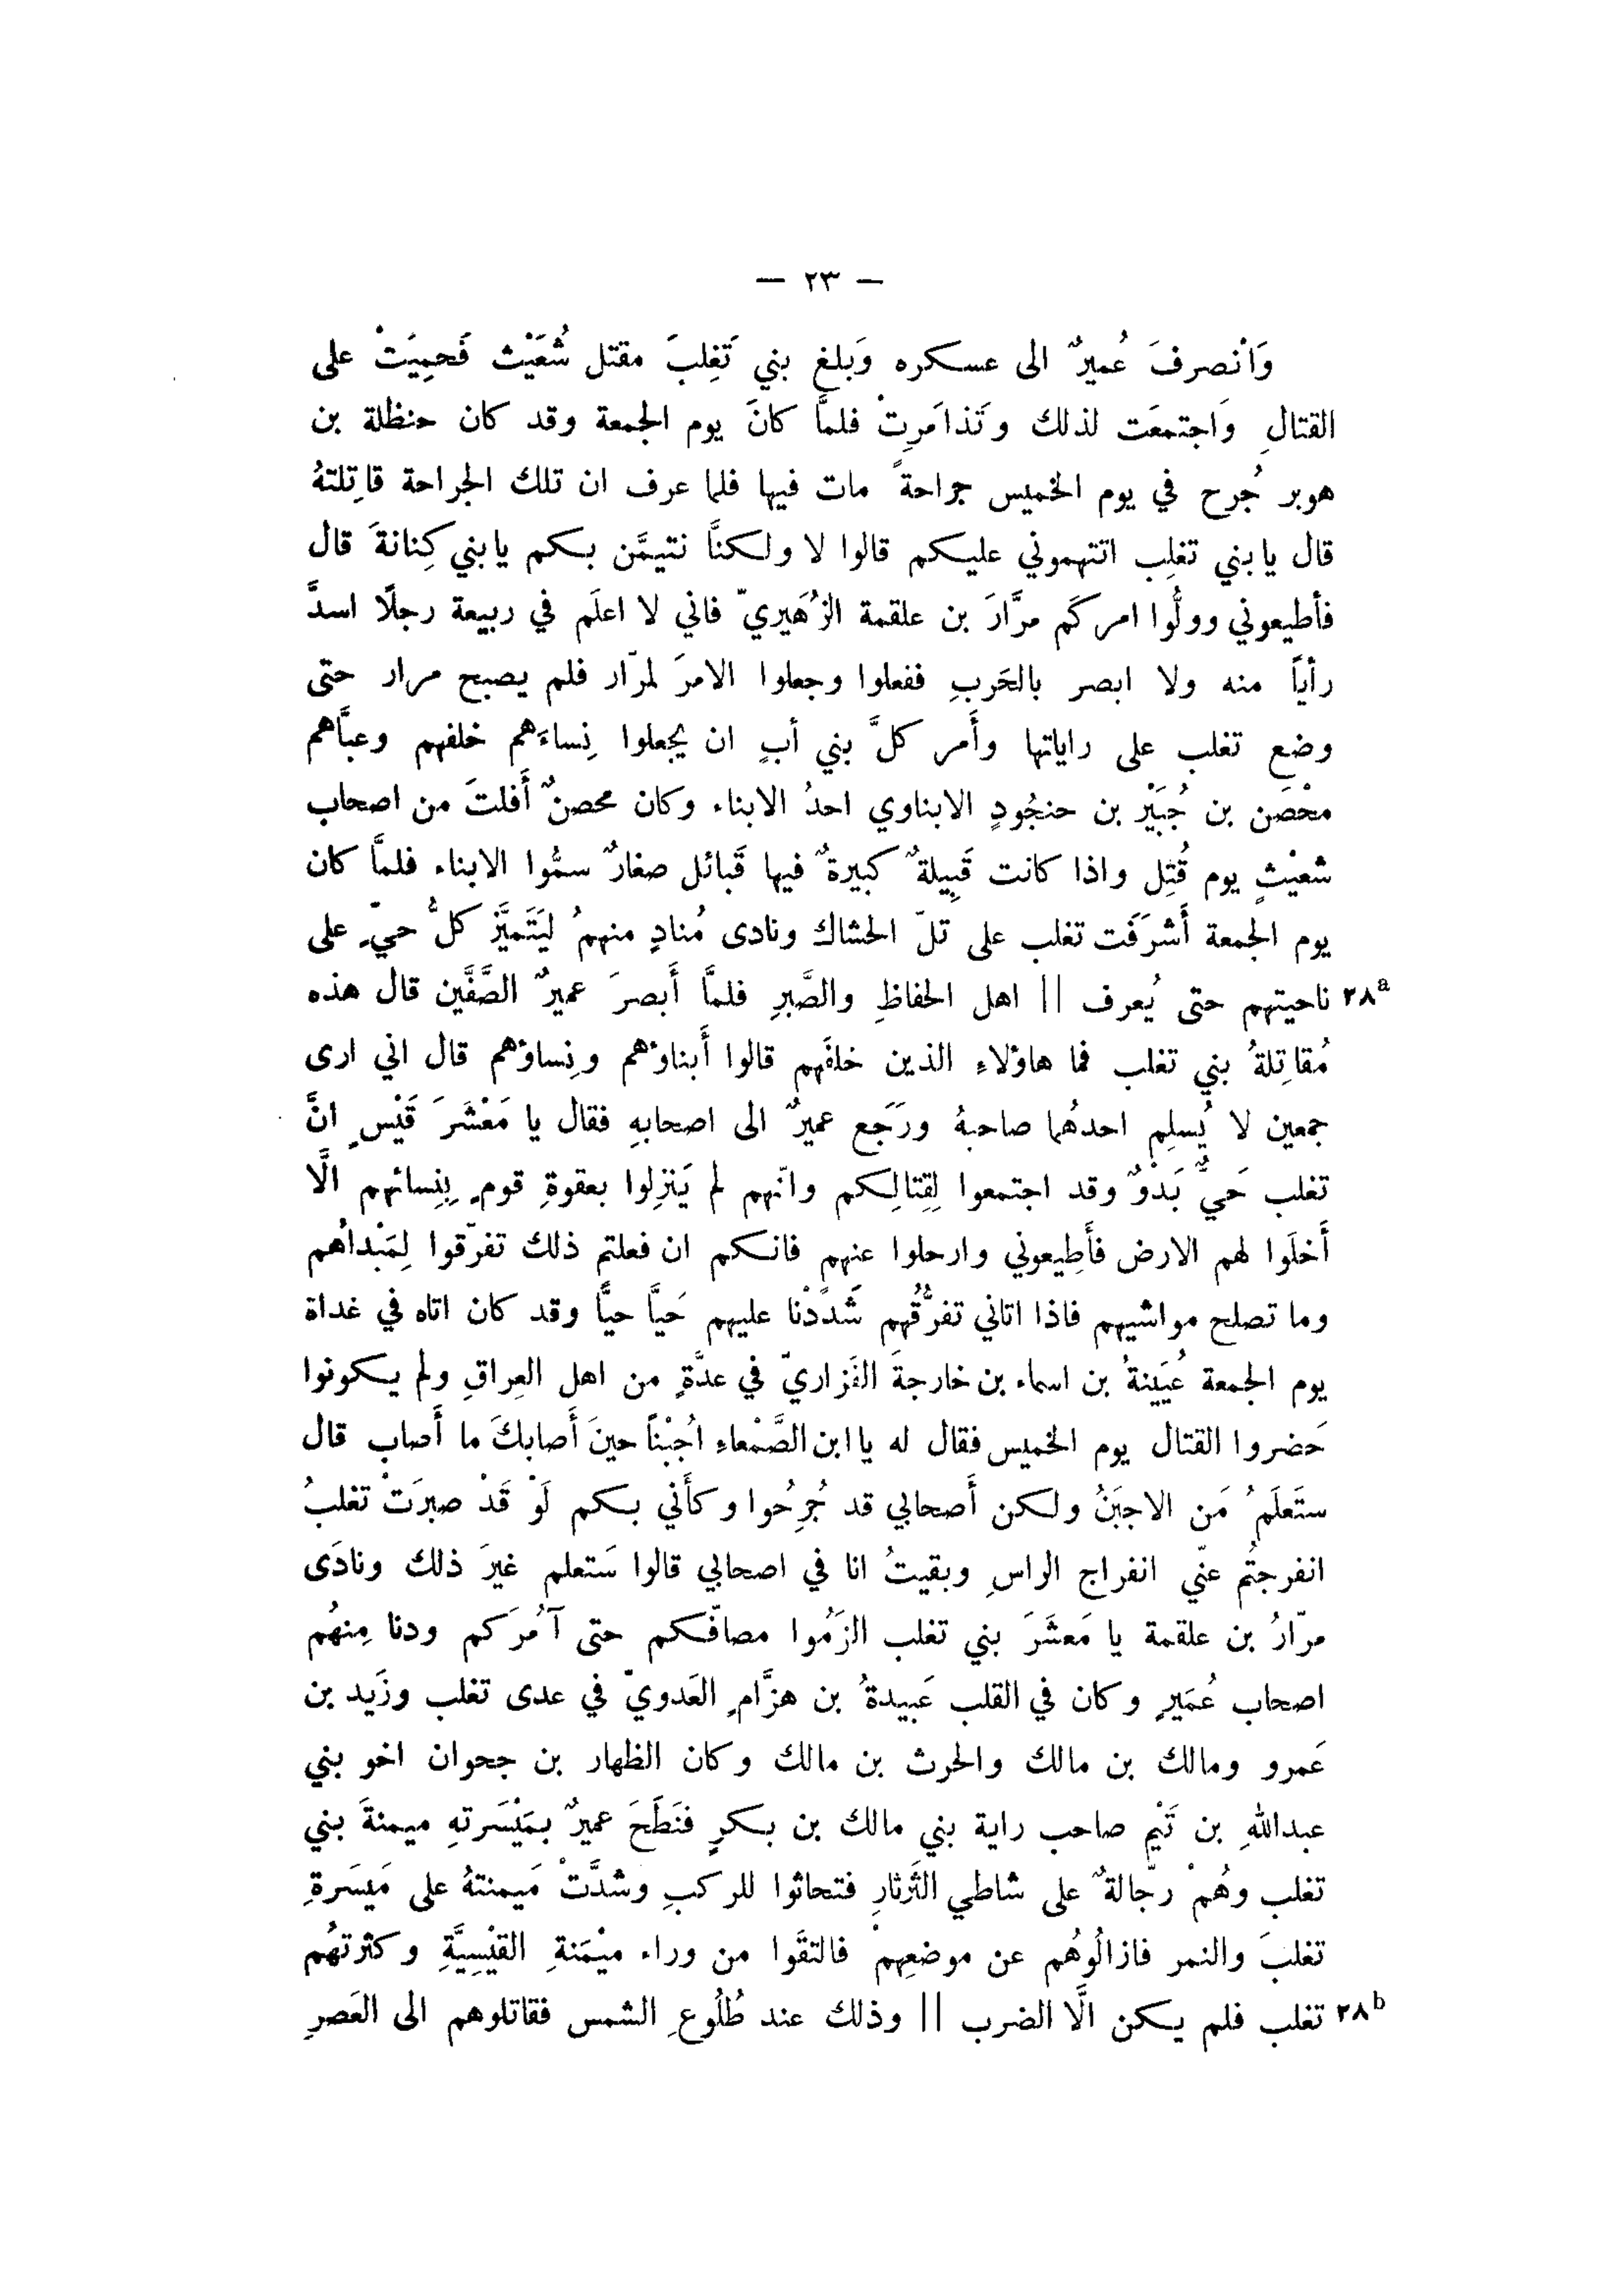 — ٢٣ —
وَاْنصرفَ عُميرٌ الى عسكره وَبلغ بني تَغِلبَ مقتل شُعَيْث فَحمِيَتْ على
القتالِ وَاجتمعَت لذلك وتَذاَمرِتْ فلمَّا كانَ يوم الجمعة وقد كان حنظلة بن
هوبر جُرح في يوم الخميس جراحةً مات فيها فلما عرف ان تلك الجراحة قاتِلتهُ
قال يا بني تغلِب اتتهموني عليكم قالوا لا ولكنَّا نتيمَّن بكم يا بني كِنانةَ قال
فأطيعوني وولُّوا امركَم مرَّارَ بن علقمة الزُهَيريّ فاني لا اعلَم في ربيعة رجلًا اسدَّ
رأيًا منه ولا ابصر بالحَربِ ففعلوا وجعلوا الامرَ لمرّار فلم يصبح مرار حتى
وضع تغلب على راياتها وأَمر كلَّ بني أبٍ ان يجعلوا نِساءَهم خلفهم وعبَّاهم
محْصَن بن جُبَيْر بن حنجُودٍ الابناوي احدُ الابناء وكان محصنٌ أَفلتَ من اصحاب
شعيْثٍ يوم قُتِل واذا كانت قَبِيلةٌ كبيرةٌ فيها قَبائل صغارٌ سمُّوا الابناء فلمَّا كان
يوم الجمعة أَشرَفَت تغلب على تلّ الحشاك ونادى مُنادٍ منهمُ ليَتَميَّز كلُّ حيٍّ على
٢٨a ناحيتهم حتى يُعرف || اهل الحفاظِ والصَّبرِ فلمَّا أَبصرَ عميرٌ الصَّفَّين قال هذه
مُقاتِلةُ بني تغلب فما هاوُلاءِ الذين خلفَهم قالوا أَبناوُهم ونِساوُهم قال اني ارى
جمعين لا يُسلِم احدهُما صاحبهُ ورَجَع عميرٌ الى اصحابهِ فقال يا مَعْشَرَ قَيْسٍ انَّ
تغلب حَيٌّ بَدْوٌ وقد اجتمعوا لِقِتالِكم وانّهم لم يَنزِلوا بعقوةِ قومٍ بِنِسائهم الَّا
أَخلَوا لهم الارض فأَطِيعوني وارحلوا عنهم فانكم ان فعلتم ذلك تفرّقوا لِمَبْدأهم
وما تصلح مواشيهم فاذا اتاني تفرُّقُهم شَددْنا عليهم حَيًّا حيًّا وقد كان اتاه في غداة
يوم الجمعة عُيَيْنةُ بن اسماء بن خارجةَ الفَزاريّ في عدَّةٍ من اهل العِراقِ ولم يكونوا
حَضروا القتال يوم الخميس فقال له يا ابن الصَّمْعاءِ اجُبْنًا حينَ أَصابكَ ما أَصاب قال
ستَعلَمُ مَن الاجبَنُ ولكن أَصحابي قد جُرِحُوا وكأَني بكم لَوْ قَدْ صبرَتْ تغلبُ
انفرجتُم عنّي انفراج الراسِ وبقيتُ انا في اصحابي قالوا سَتعلم غيرَ ذلك ونادَى
مرّارُ بن علقمة يا مَعشَرَ بني تغلب الزَمُوا مصافّكم حتى آمُرَكم ودنا مِنهُم
اصحاب عُمَيرٍ وكان في القلب عَبيدةُ بن هزَّامٍ العَدويّ في عدى تغلب وزَيد بن
عَمرو ومالك بن مالك والحرث بن مالك وكان الظهار بن جحوان اخو بني
عبداللهِ بن تَيْم صاحب راية بني مالك بن بكرٍ فنَطَحَ عميرٌ بمَيْسَرتهِ ميمنةَ بني
تغلب وهُمْ رجّالةٌ على شاطي الثَرثارِ فتحاثوا للركبِ وشدَّتْ مَيمنتهُ على مَيسَرةِ
تغلبَ والنمر فازالُوهُم عن موضعِهمْ فالتقَوا من وراء ميْمَنةِ القيْسِيَّةِ وكثرتهُم
٢٨b تغلب فلم يكن الَّا الضرب || وذلك عند طُلُوعِ الشمس فقاتلوهم الى العَصرِ